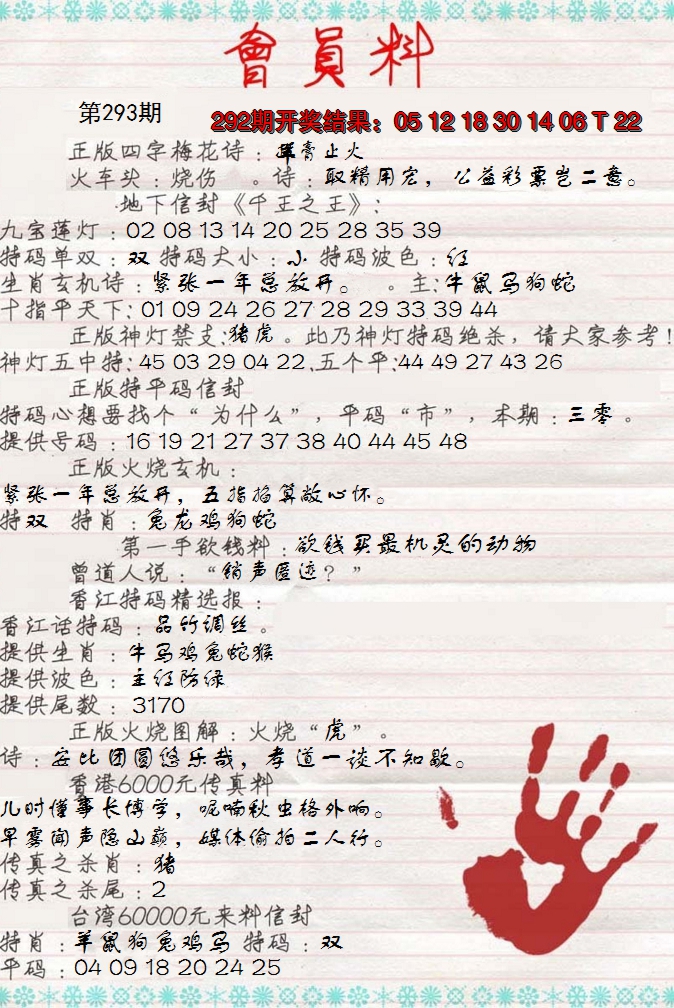 會員料
第293期
292期开奖结果：05 12 18 30 14 06 T 22
正版四字梅花诗：膏止火
火车头：烧伤 。诗：取精用宏，公益彩票岂二意。
地下信封《千王之王》：
九宝莲灯：02 08 13 14 20 25 28 35 39
特码单双：双 特码大小：小 特码波色：红
生肖玄机诗：紧张一年总放开。 。主:牛鼠马狗蛇
十指平天下: 01 09 24 26 27 28 29 33 39 44
正版神灯禁支:猪虎。此乃神灯特码绝杀，请大家参考!
神灯五中特: 45 03 29 04 22.五个平:44 49 27 43 26
正版特平码信封
特码心想要找个“为什么”，平码“市”，本期：三零。
提供号码：16 19 21 27 37 38 40 44 45 48
正版火烧玄机：
紧张一年总放开，五指掐算敞心怀。
特双 特肖：兔龙鸡狗蛇
第一手欲钱料：欲钱买最机灵的动物
曾道人说：“销声匿迹？”
香江特码精选报：
香江话特码：品竹调丝。
提供生肖：牛马鸡兔蛇猴
提供波色：主红防绿
提供尾数：3170
正版火烧图解：火烧“虎”。
诗：安比团圆悠乐哉，孝道一谈不知歇。
香港6000元传真料
儿时懂事长博学，呢喃秋虫格外响。
早雾闻声隐山巅，媒体偷拍二人行。
传真之杀肖：猪
传真之杀尾：2
台湾60000元来料信封
特肖：羊鼠狗兔鸡马 特码：双
平码：04 09 18 20 24 25